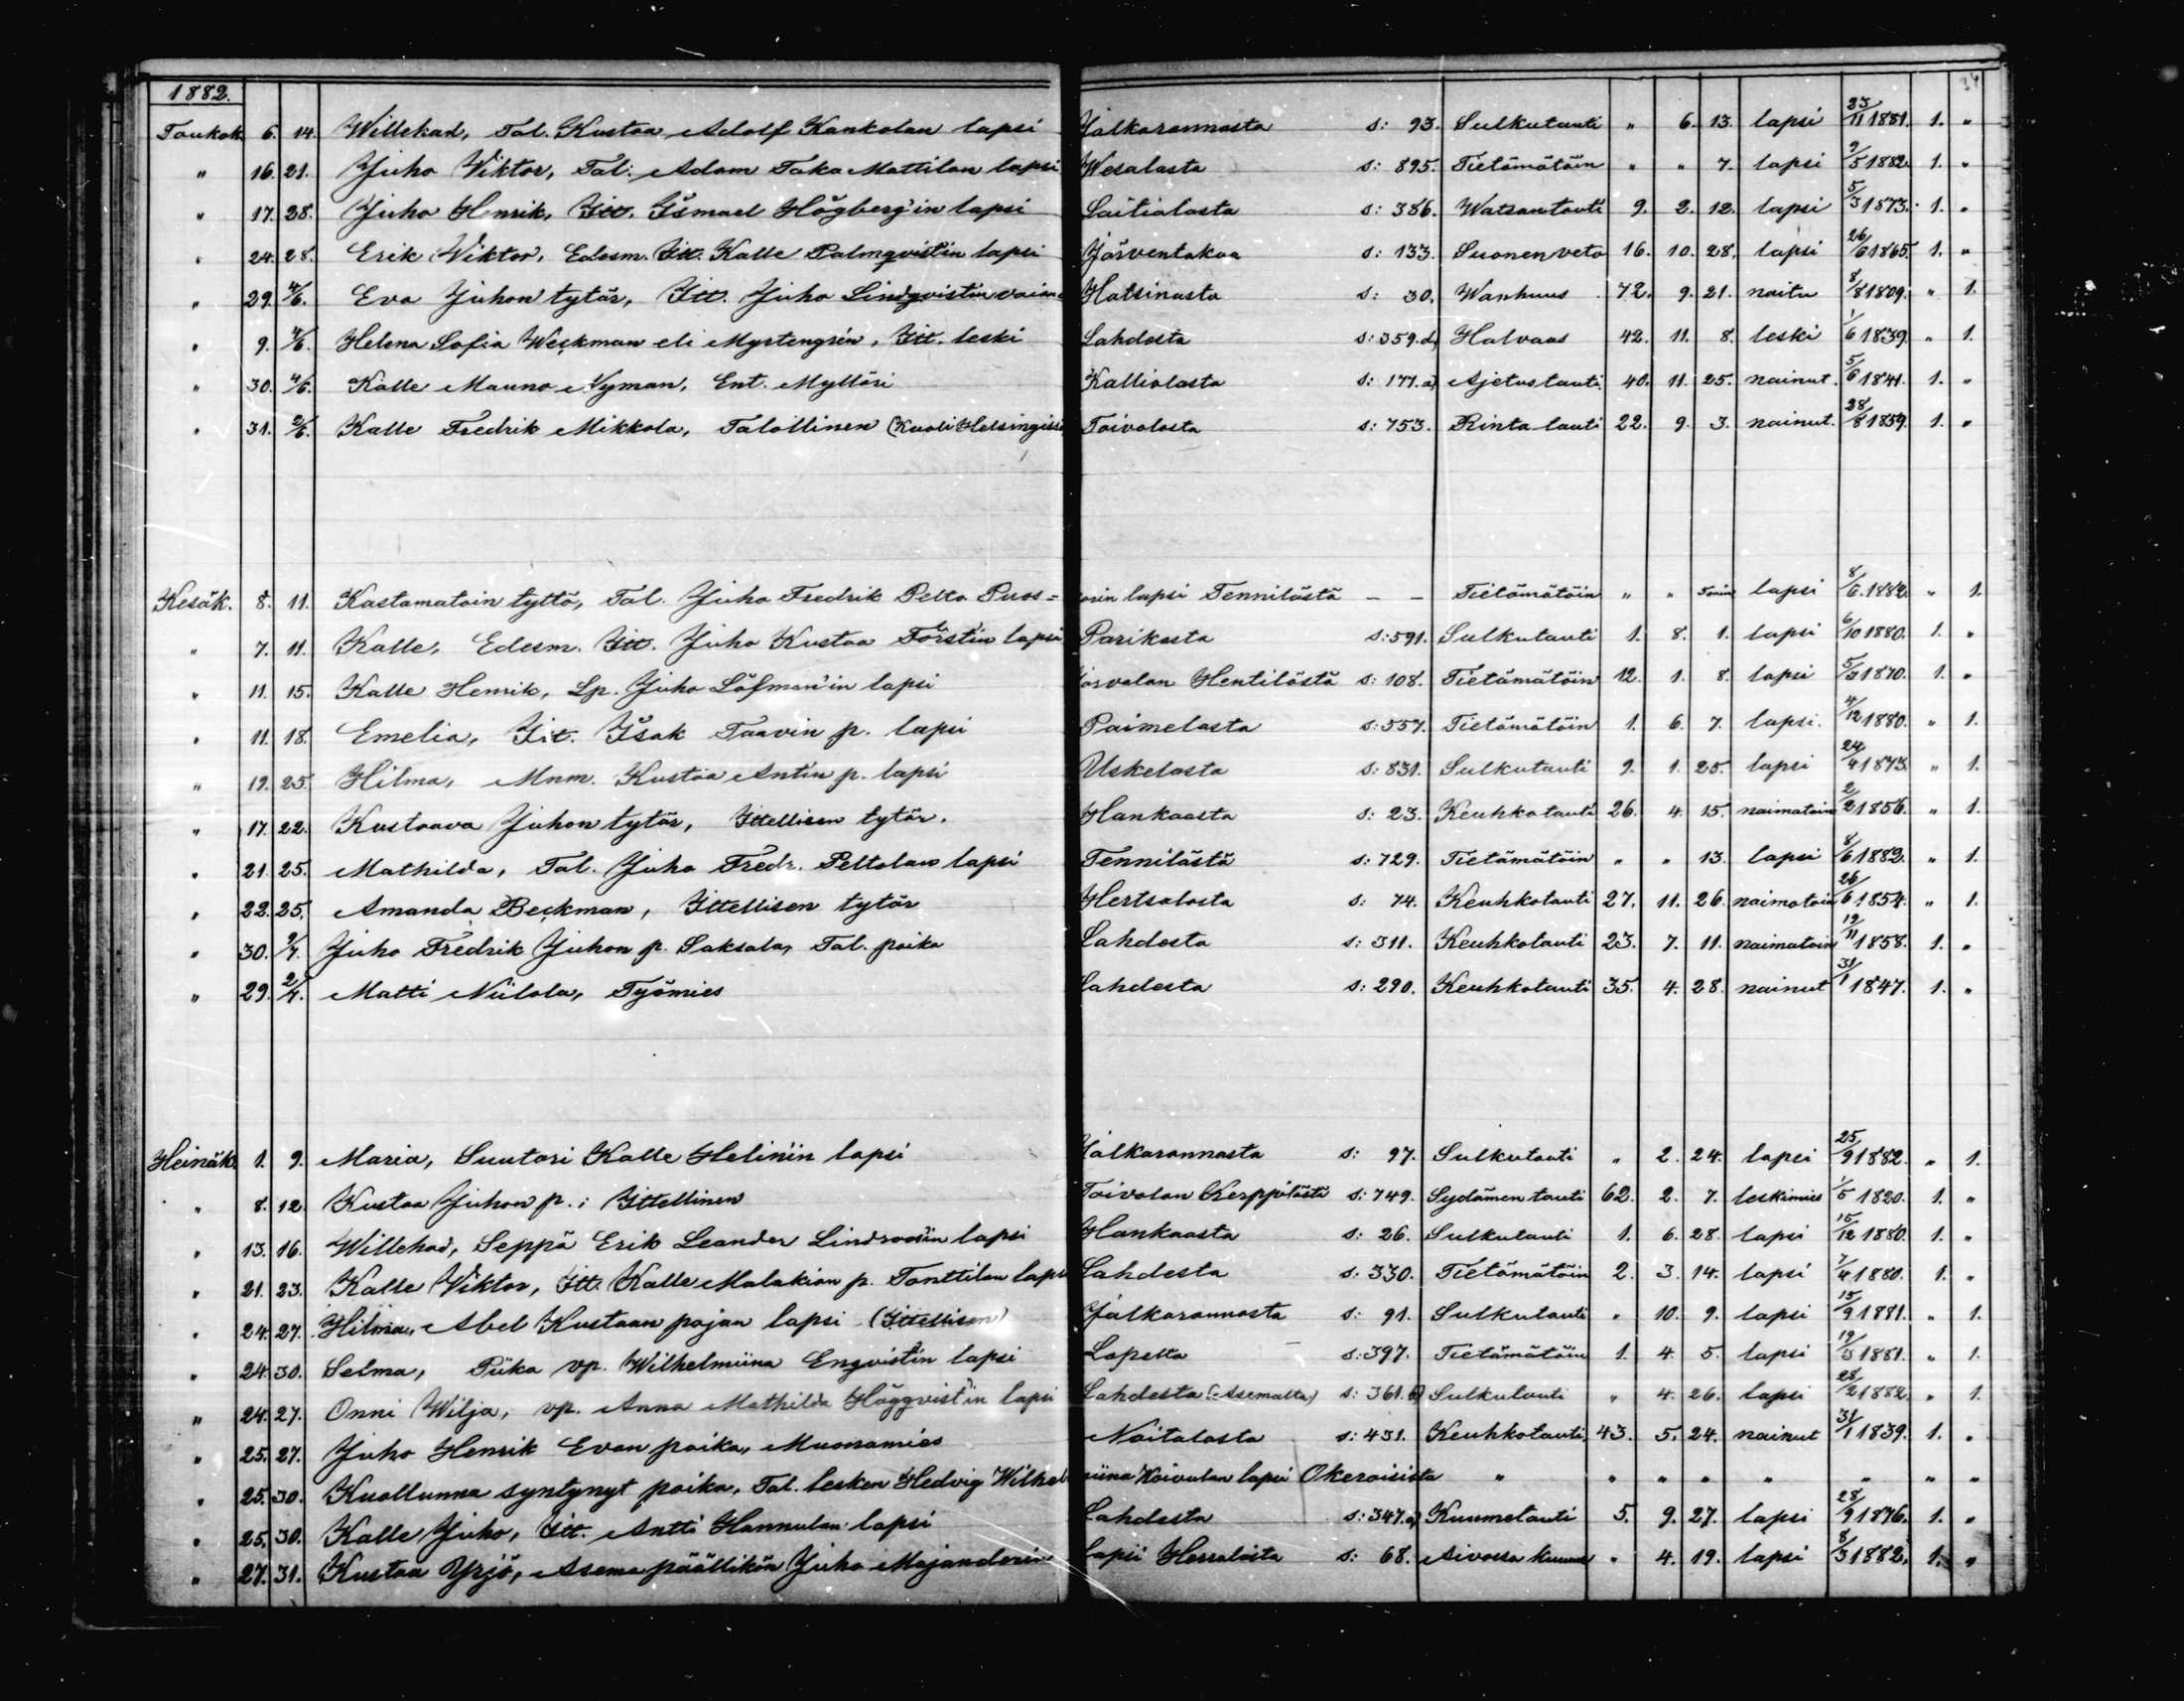 1882.
Toukok. 6. 14. Willehad, Tal. Kustaa Adolf Kankolan lapsi Jalkarannasta s: 93. Sulkutauti " 6. 13. lapsi 23/11 1881. 1. "
" 16. 21. Juho Viktor, Tal. Adam Taka Mattilan lapsi Wesalasta s: 895. Tietämätöin " " 7. lapsi 9/5 1882. 1. "
" 17. 28. Juho Henrik, Itt. Ismael Högberg'in lapsi Laitialasta s: 386. Watsantauti 9. 2. 12. lapsi 5/3 1873. 1. "
" 24. 28. Erik Viktor, Edesm. Itt. Kalle Palmqvist'in lapsi Järventakaa s: 133. Suonenveto 16. 10. 28. lapsi 26/6 1865. 1. "
" 29. 4/6. Eva Juhon tytär, Itt. Juho Lindqvistin vaimo Hatsinasta s: 30. Wanhuus 72. 9. 21. naitu 8/8 1809. " 1.
" 9. 4/6. Helena Sofia Weckman eli Myrtengrén, Itt. leski Lahdesta s: 359.d, Halvaus 42. 11. 8. leski 1/6 1839. " 1.
" 30. 4/6. Kalle Mauno Nyman, Ent. Mylläri Kalliolasta s: 177.a) Ajetustauti 40. 11. 25. nainut. 5/6 1841. 1. "
" 31. 2/6. Kalle Fredrik Mikkola, Talollinen (Kuoli Helsingissä Toivolasta s: 753. Rintatauti 22. 9. 3. nainut. 28/8 1859. 1. "
Kesäk. 8. 11. Kastamatoin tyttö, Tal. Juho Fredrik Pelto Puos= orin lapsi Tennilästä – – Tietämätöin " " 5 min lapsi 8/6. 1882. " 1.
" 7. 11. Kalle, Edesm. Itt. Juho Kustaa Förstin lapsi Parikasta s: 591. Sulkutauti 1. 8. 1. lapsi 6/10 1880. 1. "
" 11. 15. Kalle Henrik, Lp. Juho Löfman'in lapsi Järvalan Hentilästä s: 108. Tietämätöin 12. 1. 8. lapsi 1870. 1. "
" 11. 18. Emelia, Itt. Isak Taavin p. lapsi Paimelasta s: 557. Tietämätöin 1. 6. 7. lapsi. 4/12 1880. " 1.
" 19. 25. Hilma, Mnm. Kustaa Antin p. lapsi Uskelasta s: 831. Sulkutauti 9. 1. 25. lapsi 24/4 1873 " 1.
" 17. 22. Kustaava Juhon tytär, Ittellisen tytär. Hankaasta s: 23. Keuhkotauti 26. 4. 15. naimatoin 2/2 1856. " 1.
" 21. 25. Mathilda, Tal. Juho Fredr. Peltolan lapsi Tennilästä s: 729. Tietämätöin " " 13. lapsi 8/6 1882. " 1.
" 22. 25. Amanda Beckman, Ittellisen tytär Hertsalasta s: 74. Keuhkotauti 27. 11. 26. naimatoin 26/6 1854. " 1.
" 30. 9/7. Juho Fredrik Juhon p. Saksala, Tal. poika Lahdesta s: 311. Keuhkotauti 23. 7. 11. naimatoin 19/11 1858. 1. "
" 29. 2/7. Matti Niilola, Työmies Lahdesta s: 290. Keuhkotauti 35. 4. 28. nainut 31/1 1847. 1. "
Heinäk. 1. 9. Maria, Suutari Kalle Helin'in lapsi Jalkarannasta s: 97. Sulkutauti " 2. 24. lapsi 25/9 1882. " 1.
" 8. 12. Kustaa Juhon p.; Ittellinen Toivolan Kerppilästä s: 749. Sydämen tauti 62. 2. 7. leskimies 1/5 1820. 1. "
" 13. 16. Willehad, Seppä Erik Leander Lindroosin lapsi Hankaasta s: 26. Sulkutauti 1. 6. 28. lapsi 15/12 1880. 1. "
" 21. 23. Kalle Viktor, Itt. Kalle Malakian p. Tonttilan lapsi Lahdesta s: 330. Tietämätöin 2. 3. 14. lapsi 7/4 1880. 1. "
" 24. 27. Hilma, Abel Kustaan pojan lapsi (Ittellisen) Jalkarannasta s: 91. Sulkutauti " 10. 9. lapsi 15/9 1881. " 1.
" 24. 30. Selma, Piika vp. Wilhelmiina Enqvist'in lapsi Lapelta s: 397. Tietämätöin 1. 4. 5. lapsi 19/3 1881. " 1.
" 24. 27. Onni Wilja, vp. Anna Mathilda Häggvist'in lapsi Lahdesta (Asemalta) s: 361.b) Sulkutauti " 4. 26. lapsi 28/2 1882. " 1.
" 25. 27. Juho Henrik Evan poika, Muonamies Noitalasta s: 431. Keuhkotauti 43. 5. 24. nainut 31/1 1839. 1. "
" 25. 30. Kuollunna syntynyt poika, Tal. lesken Hedvig Wilhelmiina Koivulan lapsi Okeroisista " " " " " " " "
" 25. 30. Kalle Juho, Itt. Antti Hannulan lapsi Lahdesta s: 347.a) Kuumetauti 5. 9. 27. lapsi 28/9 1876. 1. "
" 27. 31. Kustaa Yrjö, Asemapäällikön Juho Majanderin lapsi Herralasta s: 68. Aivossa kuume " 4. 19. lapsi 8/3 1882. 1. "